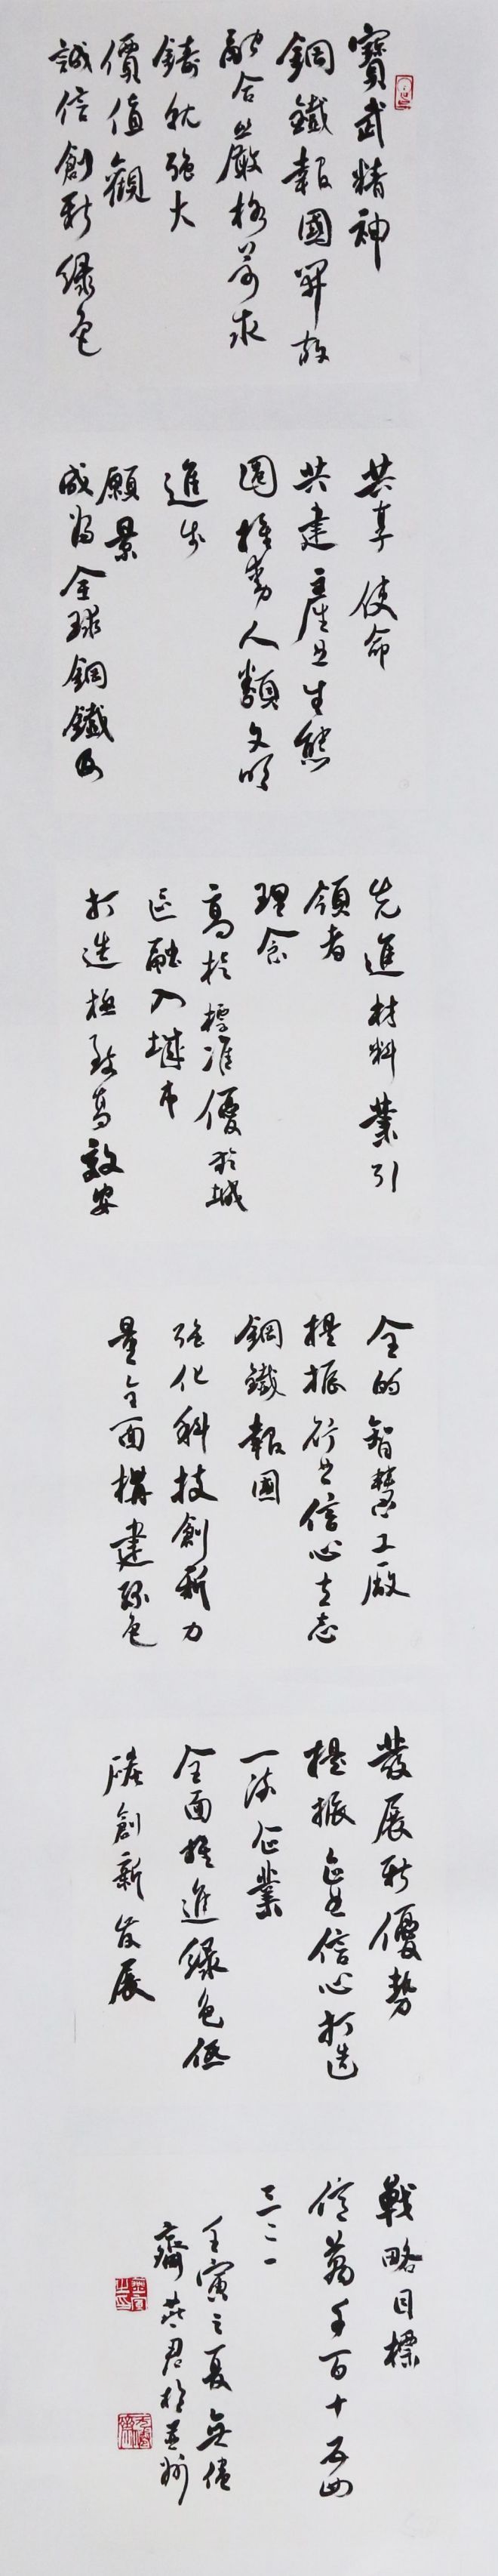 寶武精神
鋼鐵報國開放
融合严格苛求
鑄就強大
價值觀
誠信創新綠色
共享使命
共建產业生態
圈推動人類文明
進步
願景
成為全球鋼鐵及
先進材料業引
領者
理念
高於標准優於城
區融入城市
打造極致高效安
全的智慧工廠
提振行业信心立志
鋼鐵報國
強化科技創新力
量全面構建綠色
發展新優勢
提振企业信心打造
一流企業
全面推進綠色低
碳創新發展
戰略目標
億萬千百十五四
三二一
壬寅之夏無儘
齋 君於並州